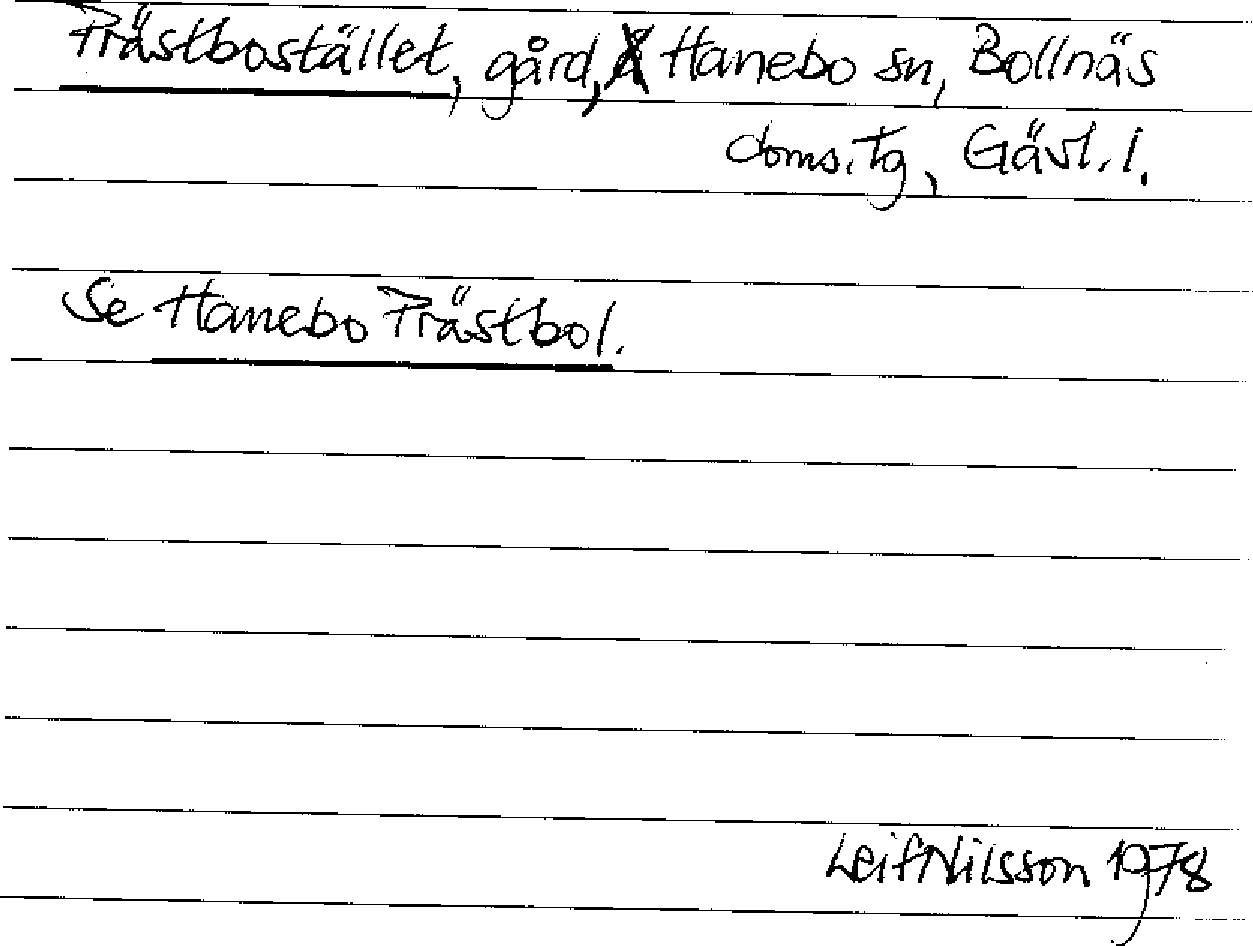 Prästbostället, gård, Hanebo sn, Bollnäs
doms.tg, Gävl.l.
Se Hanebo Prästbol.
Leif Nilsson 1978